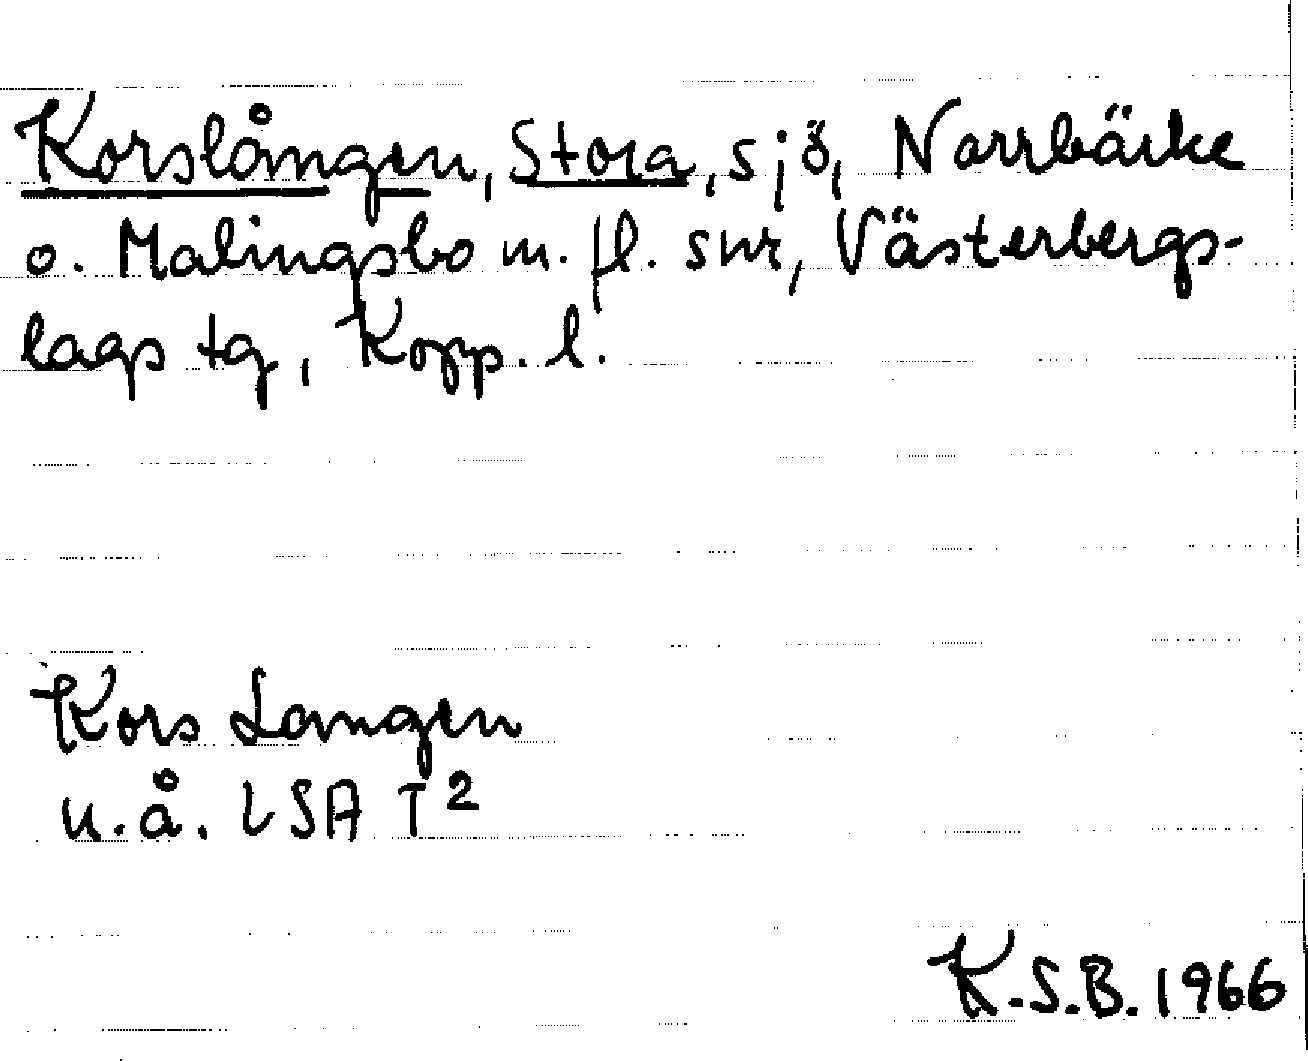 Korslången, Stora, sjö, Norrbärke
o. Malingsbo m. fl. snr, Västerbergs-
lags tg, Kopp. l.
Kors Langen
u.å. LSA T²
K.S.B. 1966